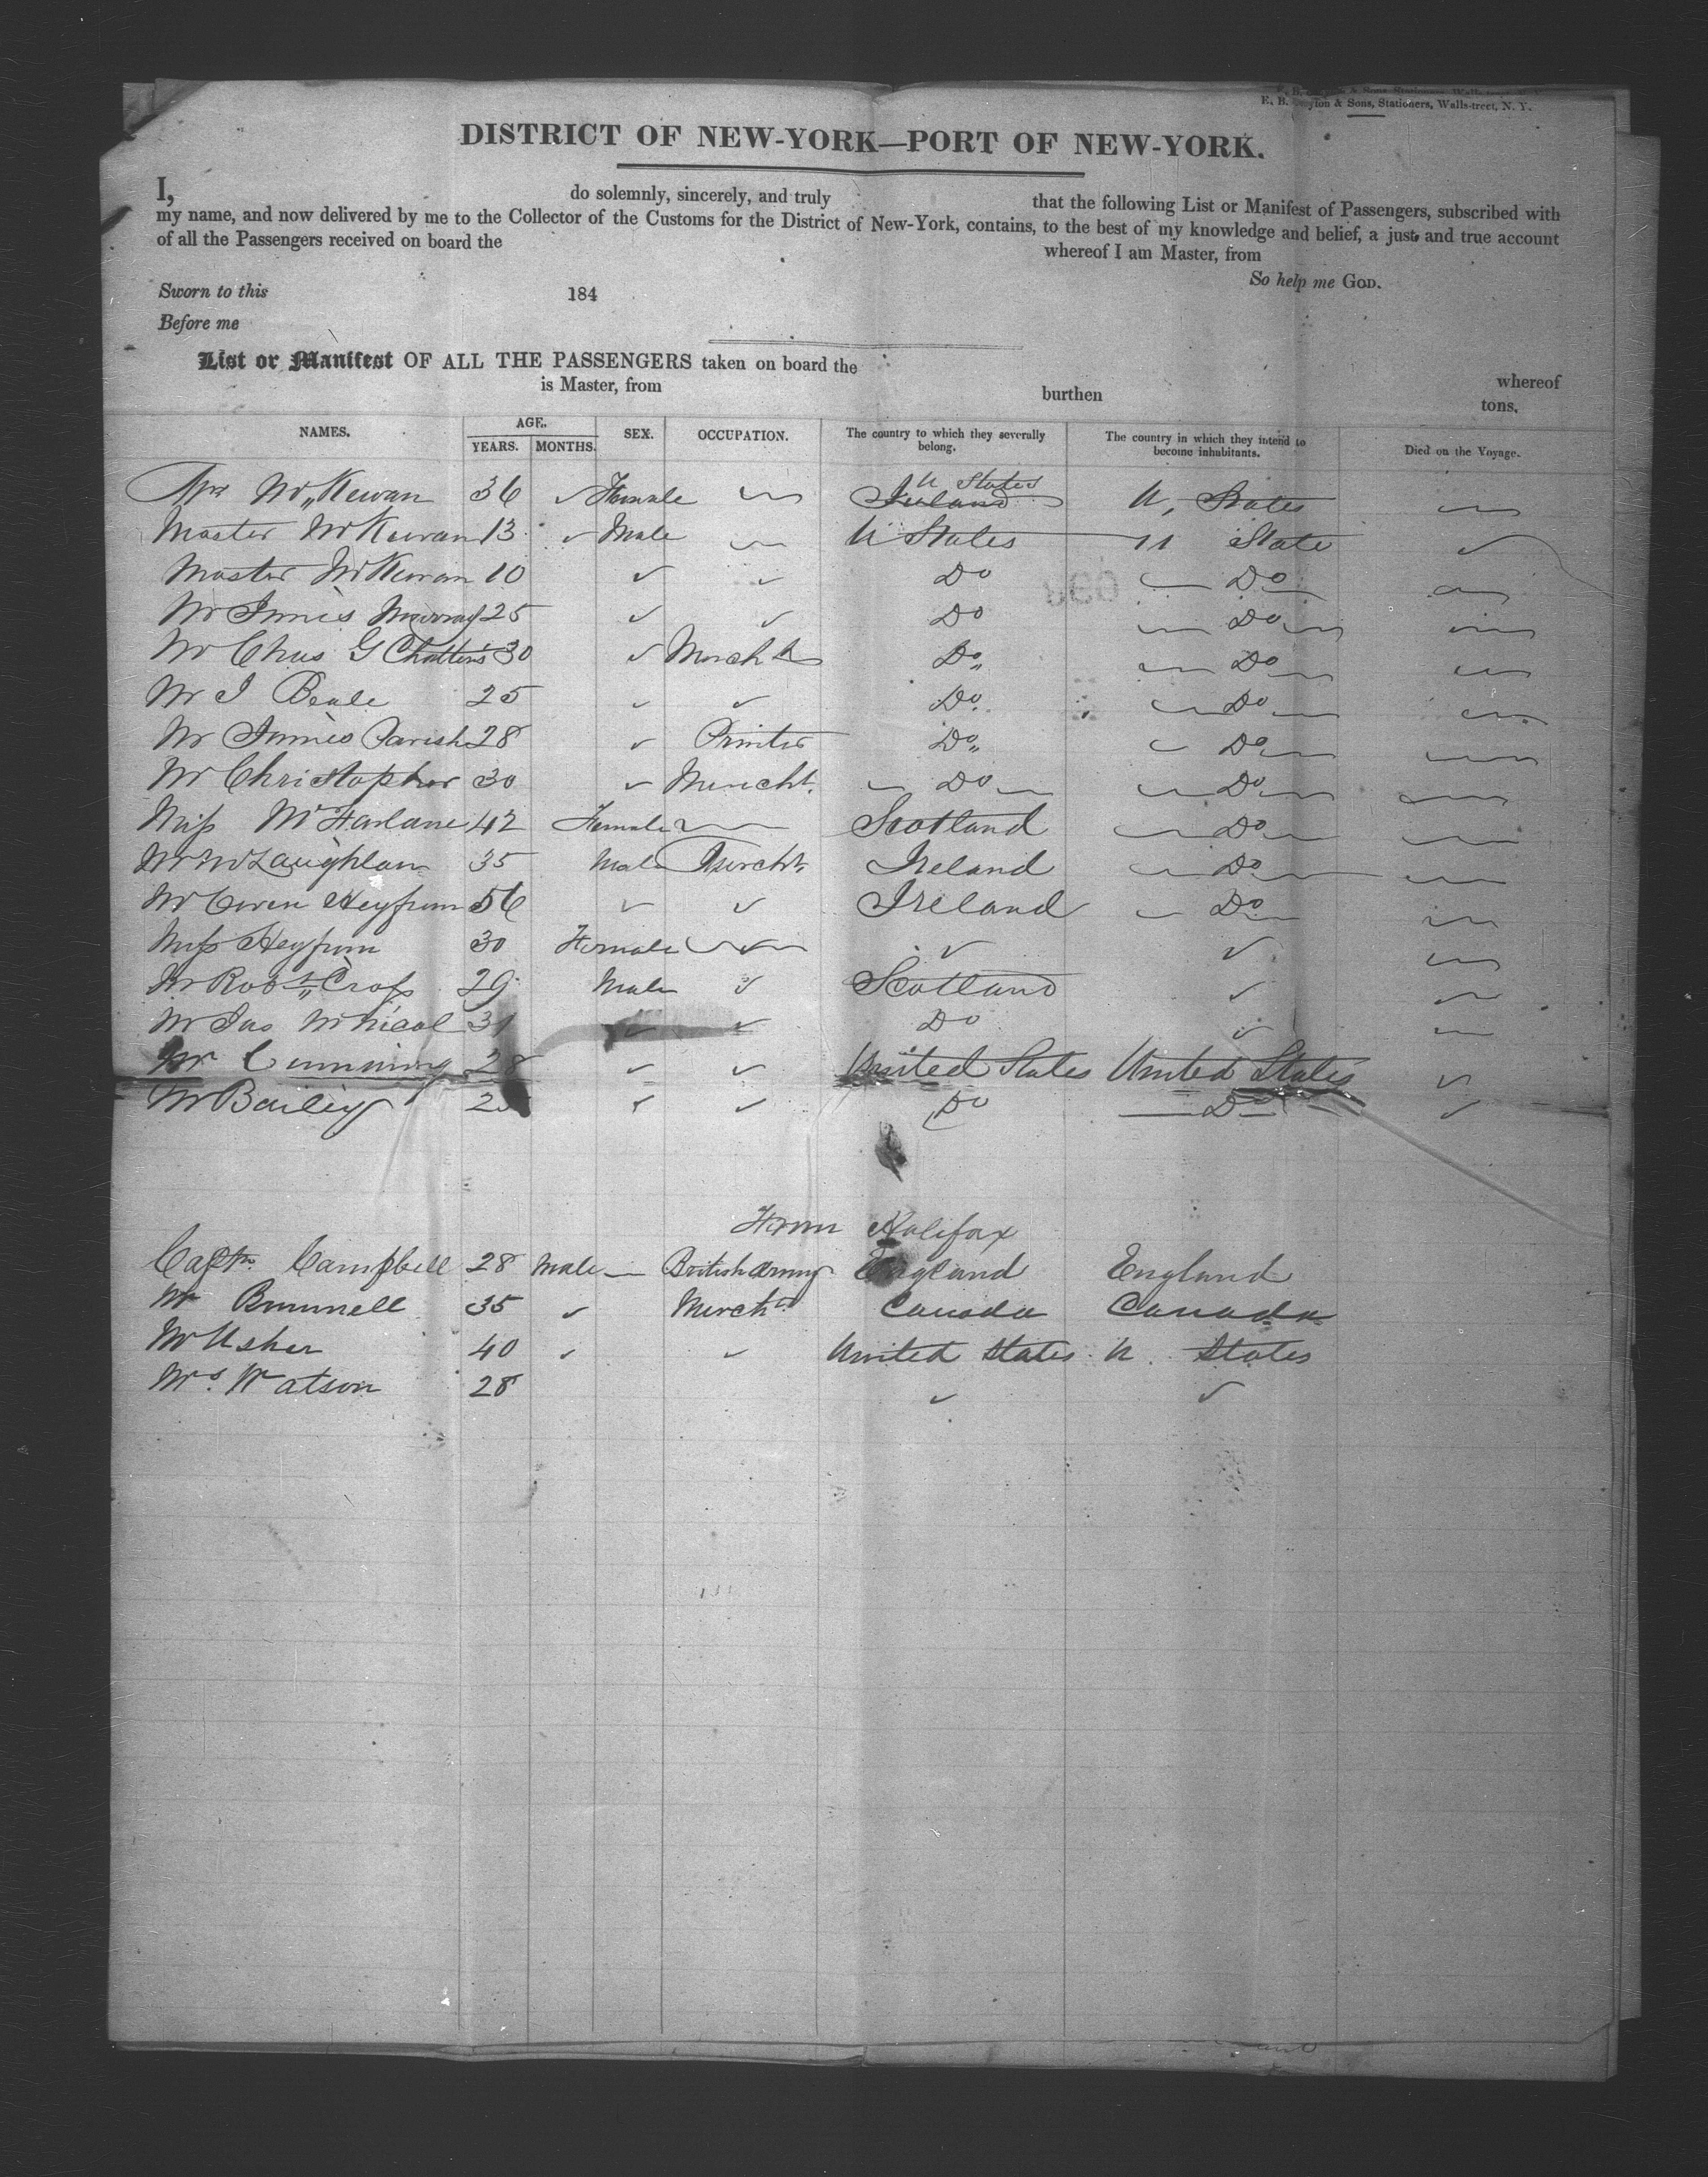 E. B. Clayton & Sons, Stationers, Wall-street, N. Y.
DISTRICT OF NEW-YORK—PORT OF NEW-YORK.
I, do solemnly, sincerely, and truly that the following List or Manifest of Passengers, subscribed with
my name, and now delivered by me to the Collector of the Customs for the District of New-York, contains, to the best of my knowledge and belief, a just and true account
of all the Passengers received on board the whereof I am Master, from
So help me GOD.
Sworn to this 184
Before me
List or Manifest OF ALL THE PASSENGERS taken on board the whereof
is Master, from burthen tons.
NAMES. AGE. YEARS. MONTHS. SEX. OCCUPATION. The country to which they severally belong. The country in which they intend to become inhabitants. Died on the Voyage.
Mrs McKewan 36 Female U States Ireland U, States
Master McKewan 13 Male U States U State
Master McKewan 10 Do Do
Mr James Murray 25 Do Do
Mr Chas G 30 Mercht Do Do
Mr J Beale 25 Do Do
Mr James Parish 28 Printer Do Do
Mr Christopher 30 Mercht. Do Do
Miss McFarlane 42 Female Scotland Do
Mr McLaughlan 35 Male Mercht. Ireland Do
Mr Owen 56 Ireland Do
Miss 30 Female
Mr Robt Cross 29 Male Scotland
Mr Jas McNicol 31 Do
Mr Cumming 28 United States United States
Mr Bailey Do Do
From Halifax
Captn. Campbell 28 Male British Army England England
Mr Brunnell 35 Mercht Canada Canada
Mr Usher 40 United States U. States
Mrs. Watson 28